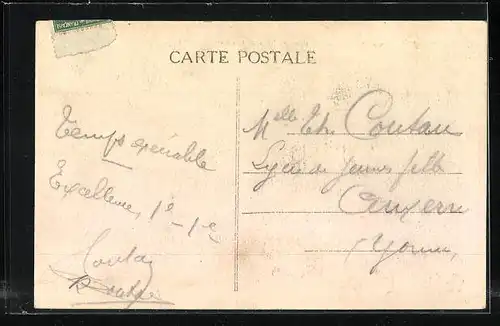 CARTE POSTALE
Temps
Excellence, 1e - 1e
Couta
Melle Th. Coutau
Lycée de jeunes filles
Auxerre
Yonne